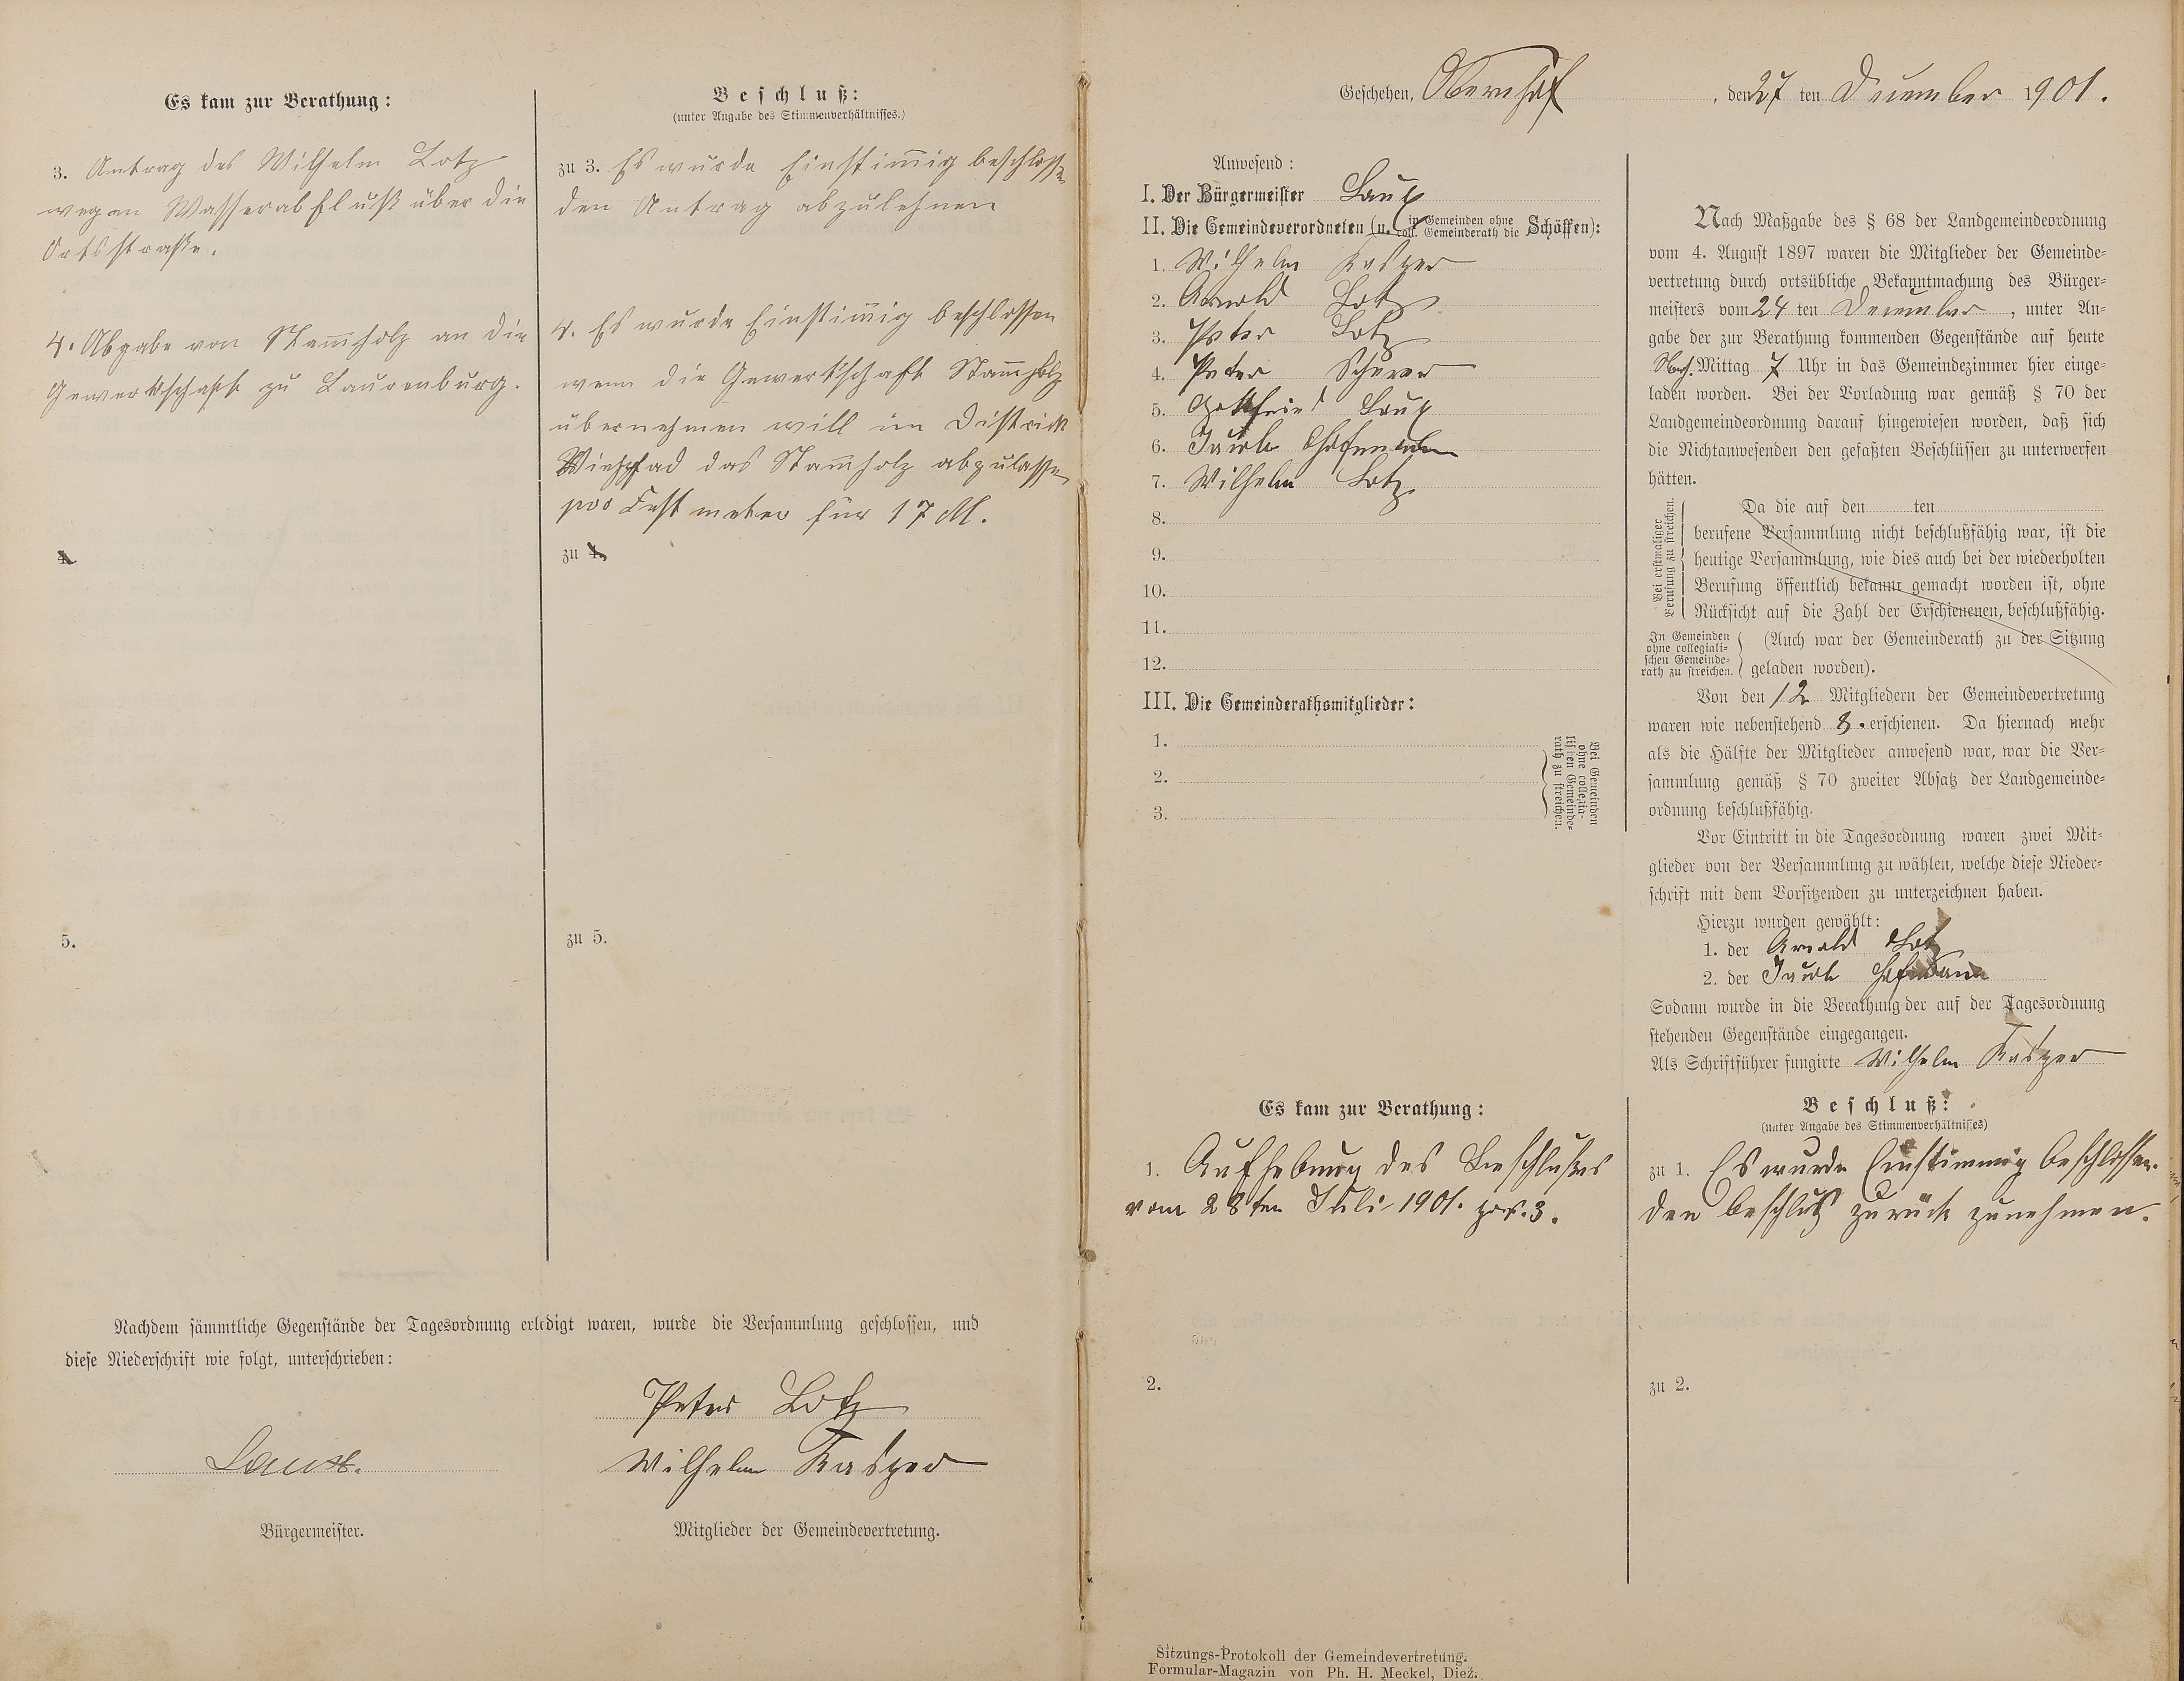 Es kam zur Berathung:
3. Antrag des Wilhelm Lotz
wegen Wasserabfluß über die
Ortsstraße.
4. Abgabe von Stam̄holz an die
Gewerkschaft zu Laurenburg.
4.
5.
Beschluß:
(unter Angabe des Stimmenverhältnisses.)
zu 3. Es wurde Einstim̄ig beschlossen
den Antrag abzulehnen
4. Es wurde Einstim̄ig beschlossen
wenn die Gewerkschaft Stam̄holz
übernehmen will im District
das Stam̄holz abzulassen
pro Festmeter für 17 M.
zu 4.
zu 5.
Nachdem sämmtliche Gegenstände der Tagesordnung erledigt waren, wurde die Versammlung geschlossen, und
diese Niederschrift wie folgt, unterschrieben:
Laux.
Bürgermeister.
Peter Lotz
Wilhelm Kasper
Mitglieder der Gemeindevertretung.
Geschehen, Obernhof, den 27 ten Dezember 1901.
Anwesend:
I. Der Bürgermeister Laux
II. Die Gemeindeverordneten (u. in Gemeinden ohne coll. Gemeinderath die Schöffen):
1. Wilhelm Kasper
2. Arnold Lotz
3. Peter Lotz
4. Peter Scherer
5. Gottfried Laux
6. Jacob Hofmann
7. Wilhelm Lotz
8.
9.
10.
11.
12.
III. Die Gemeinderathsmitglieder:
1.
2.
3.
Bei Gemeinden
ohne collegia-
lischen Gemeinde-
rath zu streichen.
Nach Maßgabe des § 68 der Landgemeindeordnung
vom 4. August 1897 waren die Mitglieder der Gemeinde-
vertretung durch ortsübliche Bekanntmachung des Bürger-
meisters vom 24 ten Dezember, unter An-
gabe der zur Berathung kommenden Gegenstände auf heute
Nach. Mittag 7 Uhr in das Gemeindezimmer hier einge-
laden worden. Bei der Vorladung war gemäß § 70 der
Landgemeindeordnung darauf hingewiesen worden, daß sich
die Nichtanwesenden den gefaßten Beschlüssen zu unterwerfen
hätten.
Bei erstmaliger
Berufung zu streichen.
Da die auf den ten
berufene Versammlung nicht beschlußfähig war, ist die
heutige Versammlung, wie dies auch bei der wiederholten
Berufung öffentlich bekannt gemacht worden ist, ohne
Rücksicht auf die Zahl der Erschienenen, beschlußfähig.
In Gemeinden
ohne collegiali-
schen Gemeinde-
rath zu streichen.
(Auch war der Gemeinderath zu der Sitzung
geladen worden).
Von den 12 Mitgliedern der Gemeindevertretung
waren wie nebenstehend 8. erschienen. Da hiernach mehr
als die Hälfte der Mitglieder anwesend war, war die Ver-
sammlung gemäß § 70 zweiter Absatz der Landgemeinde-
ordnung beschlußfähig.
Vor Eintritt in die Tagesordnung waren zwei Mit-
glieder von der Versammlung zu wählen, welche diese Nieder-
schrift mit dem Vorsitzenden zu unterzeichnen haben.
Hierzu wurden gewählt:
1. der Arnold Lotz
2. der Jacob Hofmann
Sodann wurde in die Berathung der auf der Tagesordnung
stehenden Gegenstände eingegangen.
Als Schriftführer fungirte Wilhelm Kasper
Es kam zur Berathung:
1. Aufhebung des Beschlußes
vom 28ten Juli 1901. pos. 3.
2.
Beschluß:
(unter Angabe des Stimmenverhältnisses)
zu 1. Es wurde Einstimmig beschlossen.
den beschluß zurück zunehmen.
zu 2.
Sitzungs-Protokoll der Gemeindevertretung.
Formular-Magazin von Ph. H. Meckel, Diez.